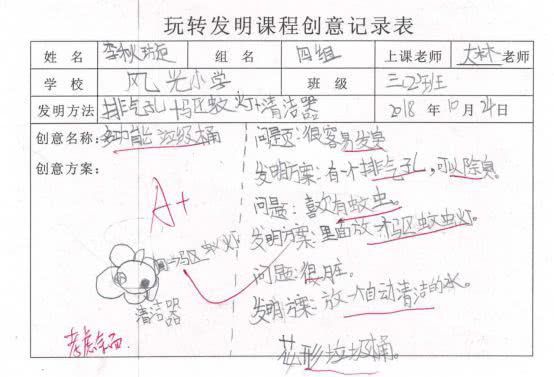 玩转发明课程创意记录表
姓名 李秋 组名 四组 上课老师 大林老师
学校 风光小学 班级 三2班
发明方法 排气孔+驱蚊灯+清洁器 2018年10月24日
创意名称: 多功能垃圾桶
创意方案:
问题:很容易发臭
发明方案:有一个排气孔,可以除臭。
问题:喜欢有蚊虫。
发明方案:里面放一个驱蚊虫灯。
问题:很脏。
发明方案:放一个自动清洁的水。
花形垃圾桶。
A+
驱蚊灯
清洁器
考虑全面